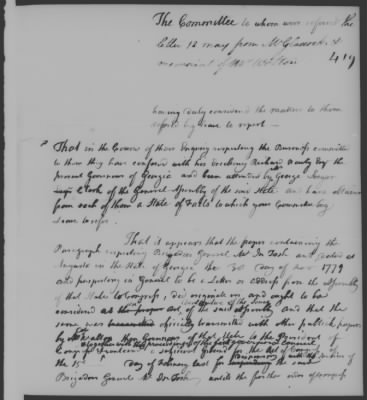 The Committee to whom were referred the
letter 12 may from Mr Glascock &
memorial of Mr Walton
419
having duly considered the matters to them
referred by leave to report —
That in the Course of their Enquiry respecting the Business committed
to them they have conferred with his Excellency Richard Howly Esqr the
present Governor of Georgia and been attended by George
Clerk of the General Assembly of the said State and have obtained
from each of them a State of Facts to which your Committee beg
leave to refer
That it appears that the paper containing the
Paragraph respecting Brigadier General McIntosh and dated at
Augusta in the State of Georgia the 30 day of Nov 1779
and purporting in General to be a Letter or address from the Assembly
of that State to Congress, did originate in and ought to be
considered as the proper act of the said assembly and that the
same was officially transmitted with other publick papers
by Mr Walton then Governor of that State to the President of
Congress
the 15th day of February last for the said
Brigadier General McIntosh until the further order of Congress